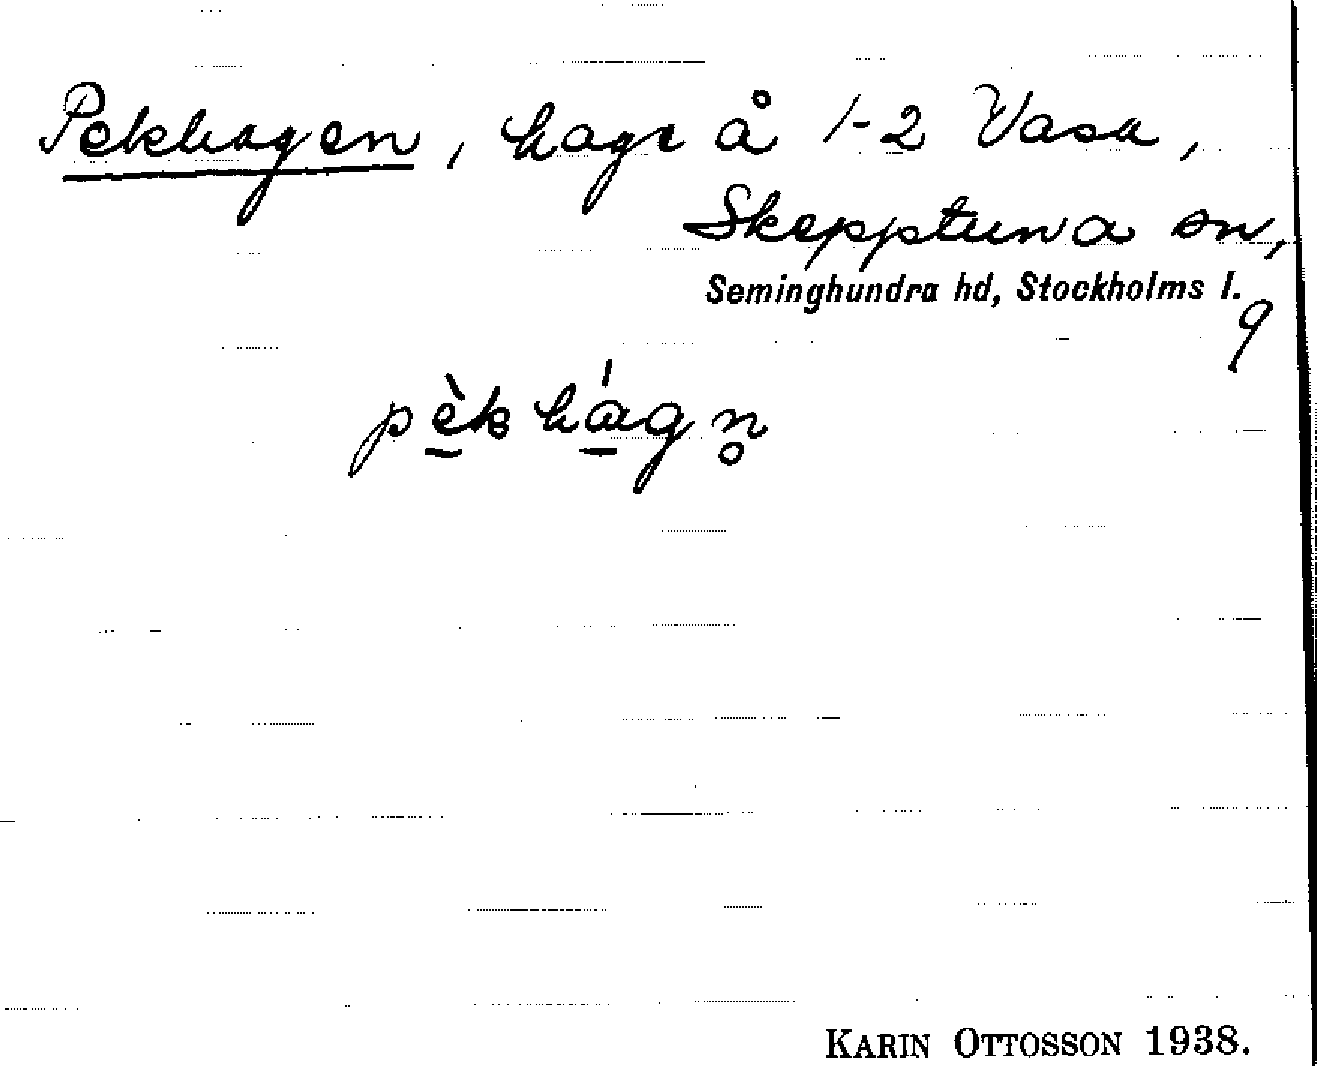 Pekhagen, hage å 1-2 Vasa,
Skepptuna sn,
Seminghundra hd, Stockholms l.
9
pèk hágn̥
KARIN OTTOSSON 1938.